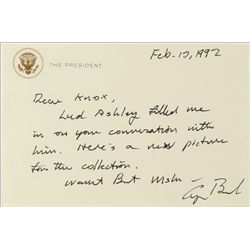 THE PRESIDENT
Feb-12, 1992
Dear Knox,
Lud Ashley filled me
in on your conversation with
him. Here's a new picture
for the collection.
Warmest Best Wishes -
G Bush